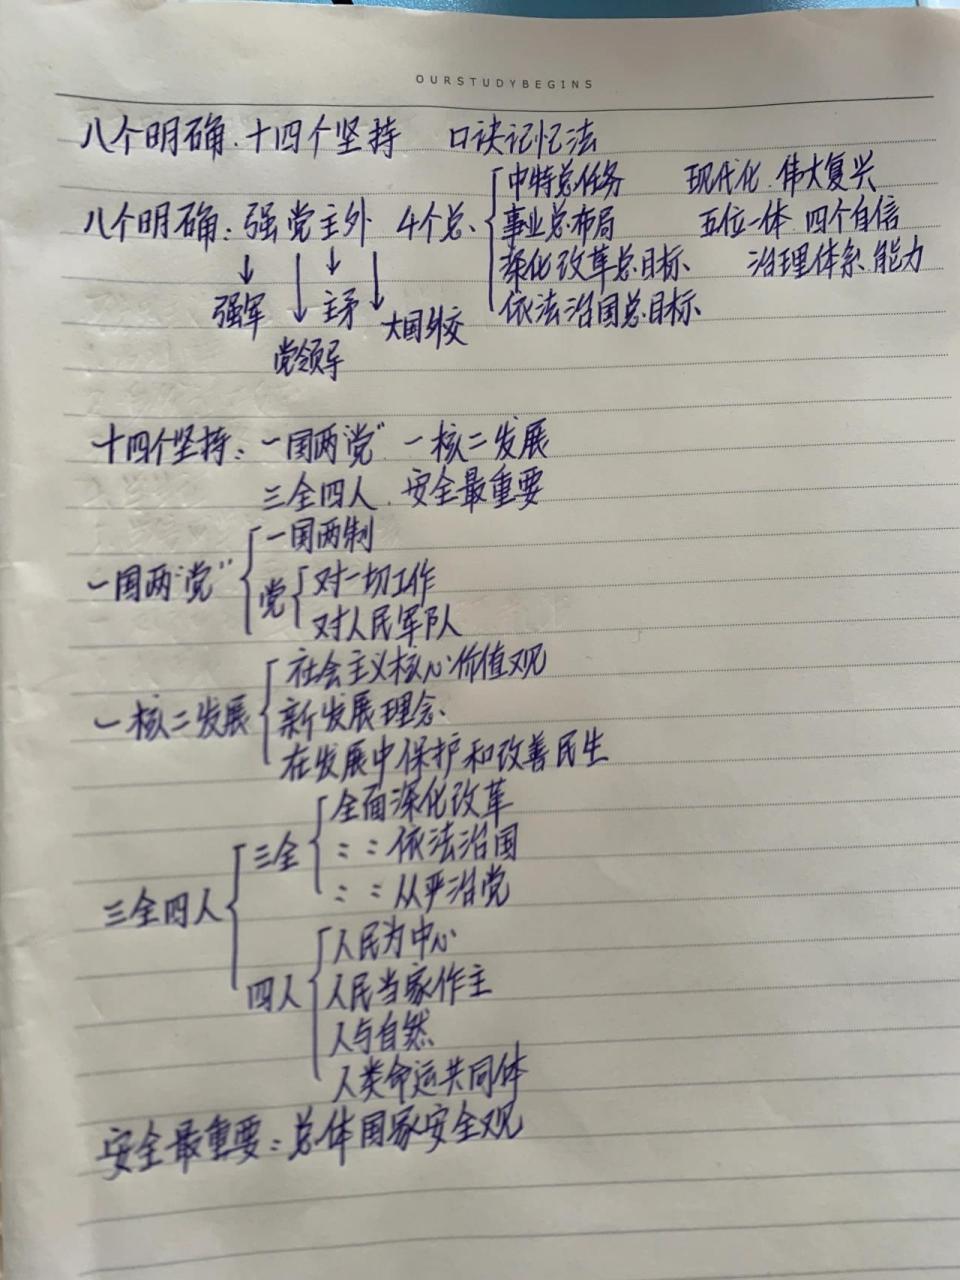 OURSTUDYBEGINS
八个明确.十四个坚持 口诀记忆法
八个明确:强党主外 4个总、
中特总任务 现代化.伟大复兴
事业总布局 五位一体 四个自信
深化改革总目标、 治理体系.能力
依法治国总目标、
强军 主矛 大国外交
党领导
十四个坚持:一国两"党" 一核二发展
三全四人.安全最重要
一国两"党"
一国两制
党
对一切工作
对人民军队
一核二发展
社会主义核心价值观
新发展理念、
在发展中保护和改善民生
三全四人
三全
全面深化改革
:: 依法治国
:: 从严治党
四人
人民为中心
人民当家作主
人与自然
人类命运共同体
安全最重要:总体国家安全观